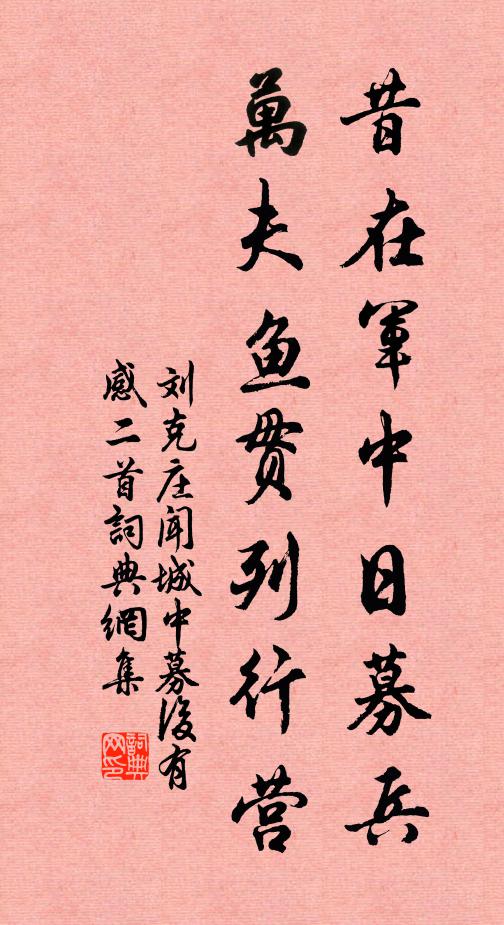 昔在軍中日募兵
萬夫鱼贯列行营
刘克庄闻城中募后有
感二首詞典網集
詞典网印